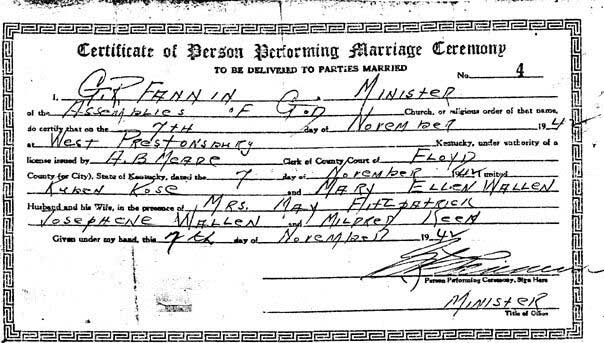 Certificate of Person Performing Marriage Ceremony
TO BE DELIVERED TO PARTIES MARRIED
No. 4
I, G.R. FANNIN MINISTER
of the ASSEMBLIES OF GOD Church, or religious order of that name,
do certify that on the 7TH day of NOVEMBER 194
at WEST PRESTONSBURG Kentucky, under authority of a
license issued by A.B MEADE Clerk of County Court of FLOYD
County (or City), State of Kentucky, dated the 7 day of NOVEMBER 1942 united
RUBEN ROSE and MARY ELLEN WALLEN
Husband and his Wife, in the presence of MRS. MAY FITZPATRICK
JOSEPHENE WALLEN and MILDRED KEEN
Given under my hand, this 7th day of NOVEMBER 1942
Person Performing Ceremony, Sign Here
MINISTER
Title of Office